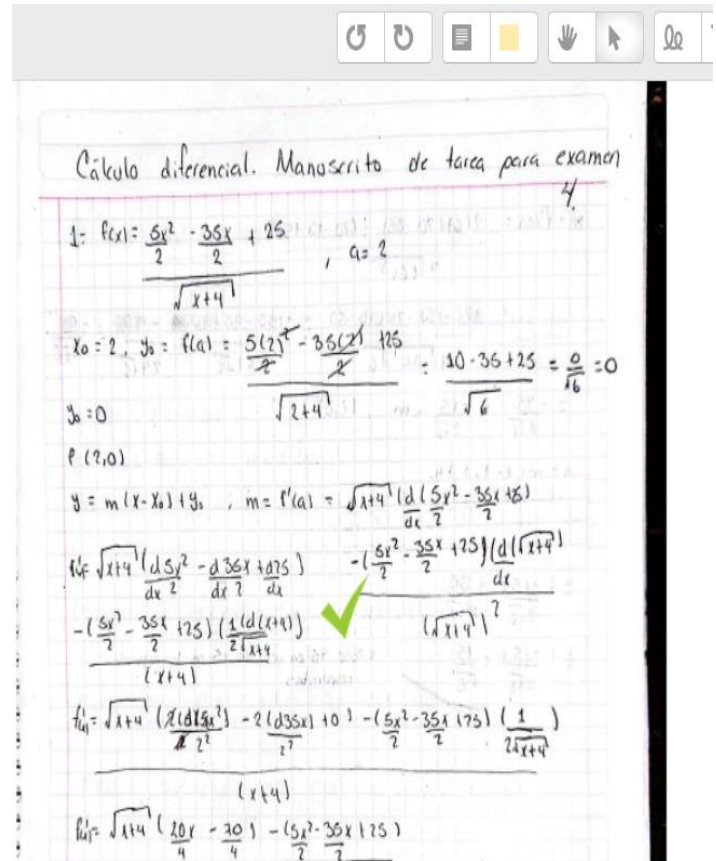 Cálculo diferencial. Manuscrito de tarea para examen
4.
1- f(x) = (5x²/2 - 35x/2 + 25) / √(x+4) , a = 2
x₀ = 2 ; y₀ = f(a) = (5(2)²/2 - 35(2)/2 + 25) / √(2+4) = (10 - 35 + 25) / √6 = 0/√6 = 0
y₀ = 0
P (2,0)
y = m (x - x₀) + y₀ , m = f'(a) = √(x+4) (d/dx (5x²/2 - 35x/2 +
√(x+4) (d/dx 5x²/2 - d/dx 35x/2 + d25/dx) - (5x²/2 - 35x/2 + 25) (d/dx (√(x+4)) / (√(x+4))²
-(5x²/2 - 35x/2 + 25) (1 (d(x+4)) / 2√(x+4)) / (x+4)
= √(x+4) (2(d(5x²)/2² - 2(d35x)/2² + 0) - (5x²/2 - 35x/2 + 25) (1 / 2√(x+4)) / (x+4)
= √(x+4) (20x/4 - 70/4) - (5x²/2 - 35x/2 + 25)